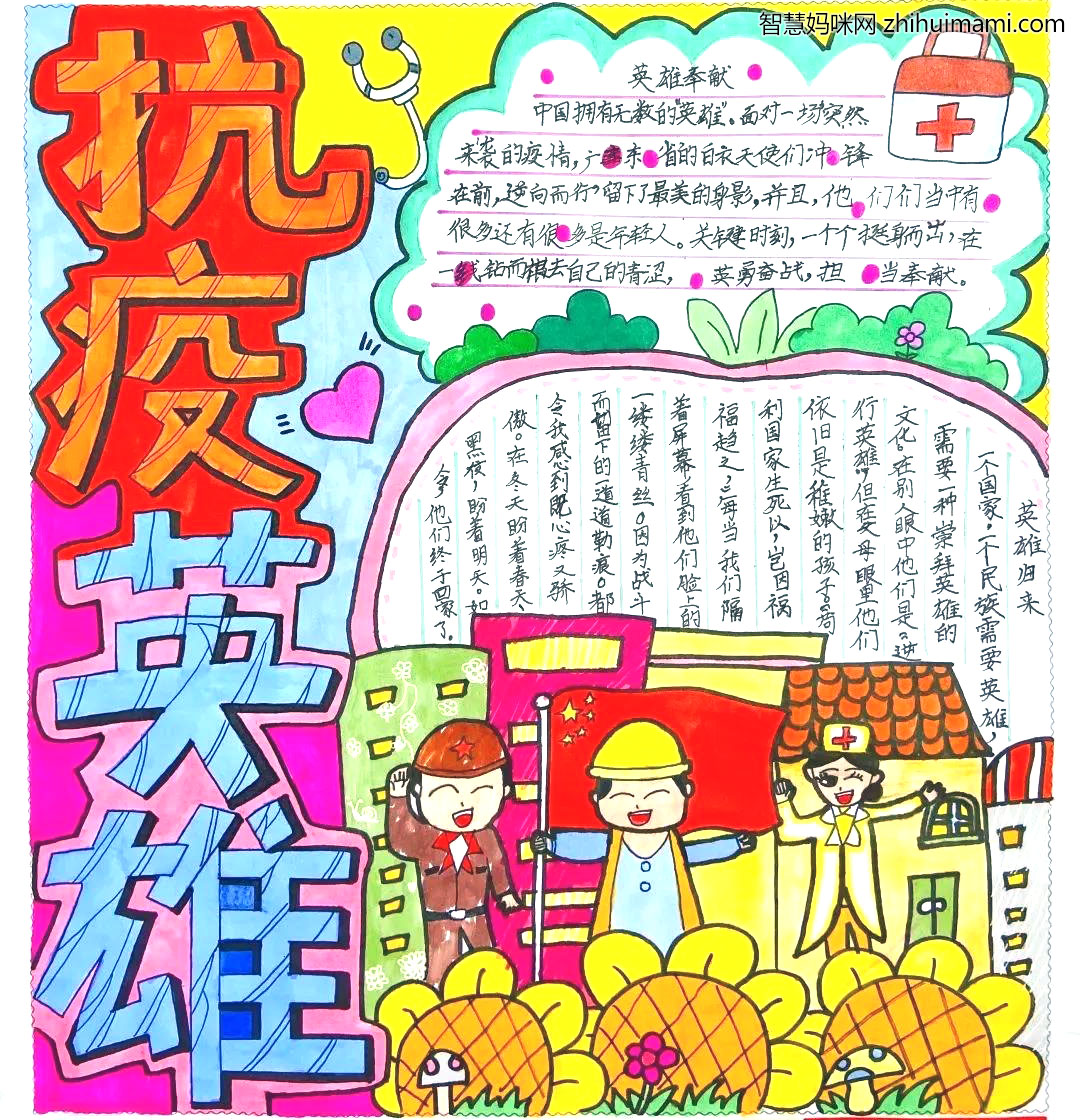 智慧妈咪网 zhihuimami.com
抗疫英雄
英雄奉献
中国拥有无数的"英雄"。面对一场突然
来袭的疫情，广东省的白衣天使们冲锋
在前，逆向而行，留了最美的身影，并且，他们们当中有
很多还有很多是年轻人。关键时刻，一个个挺身而出，在
一线褪去自己的青涩，英勇奋战，担当奉献。
英雄归来
一个国家，一个民族需要英雄，
需要一种崇拜英雄的
文化。在别人眼中他们是"逆
行英雄"，但在父母眼里他们
依旧是稚嫩的孩子。苟
利国家生死以，岂因祸
福趋之，每当我们隔
着屏幕看到他们脸上的
一缕缕青丝。因为战斗
而留下的一道道勒痕。都
令我感到既心疼又骄
傲。在冬天盼着春天，
黑夜，盼着明天。如
今，他们终于回家了。